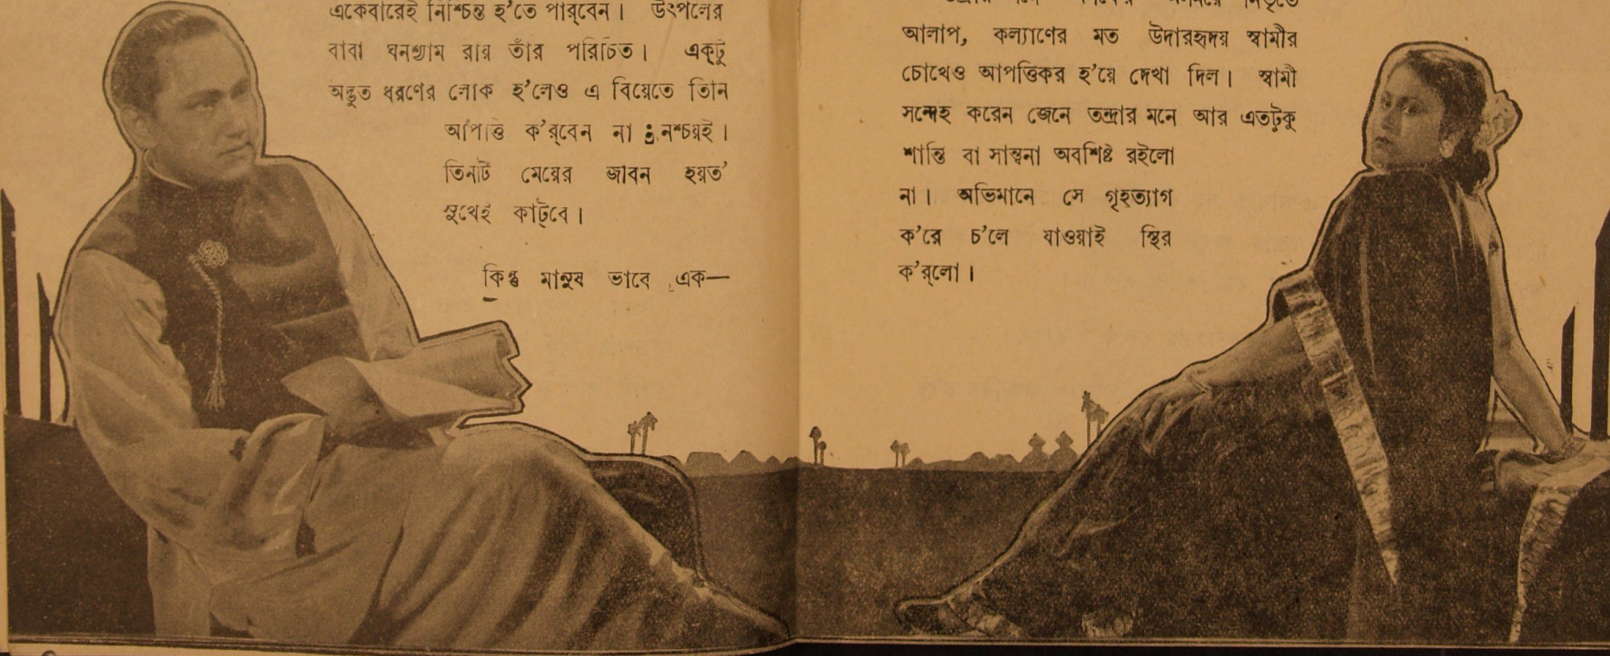 একেবারেই নিশ্চিন্ত হ'তে পার্‌বেন। উৎপলের
বাবা ঘনশ্যাম রায় তাঁর পরিচিত। একটু
অদ্ভুত ধরণের লোক হ'লেও এ বিয়েতে তিনি
আপত্তি ক'র্‌বেন না নিশ্চয়ই।
তিনটি মেয়ের জীবন হয়ত'
সুখেই কাট্‌বে।
কিন্তু মানুষ ভাবে এক—
আলাপ, কল্যাণের মত উদারহৃদয় স্বামীর
চোখেও আপত্তিকর হ'য়ে দেখা দিল। স্বামী
সন্দেহ করেন জেনে তন্দ্রার মনে আর এতটুকু
শান্তি বা সান্ত্বনা অবশিষ্ট রইলো
না। অভিমানে সে গৃহত্যাগ
ক'রে চ'লে যাওয়াই স্থির
ক'র্‌লো।